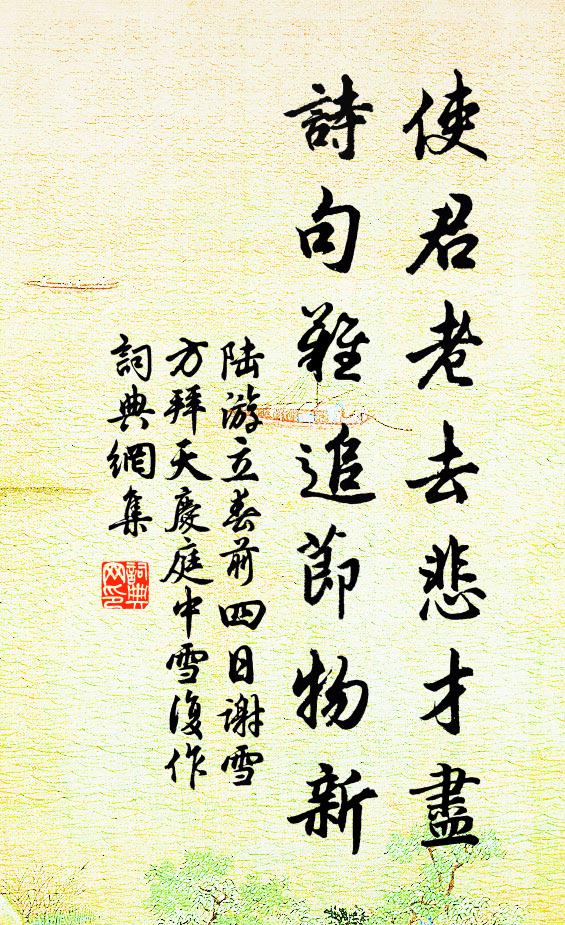 使君老去悲才盡
詩句難追節物新
陆游立春前四日谢雪
方拜天慶庭中雪復作
詞典網集
詞典网印